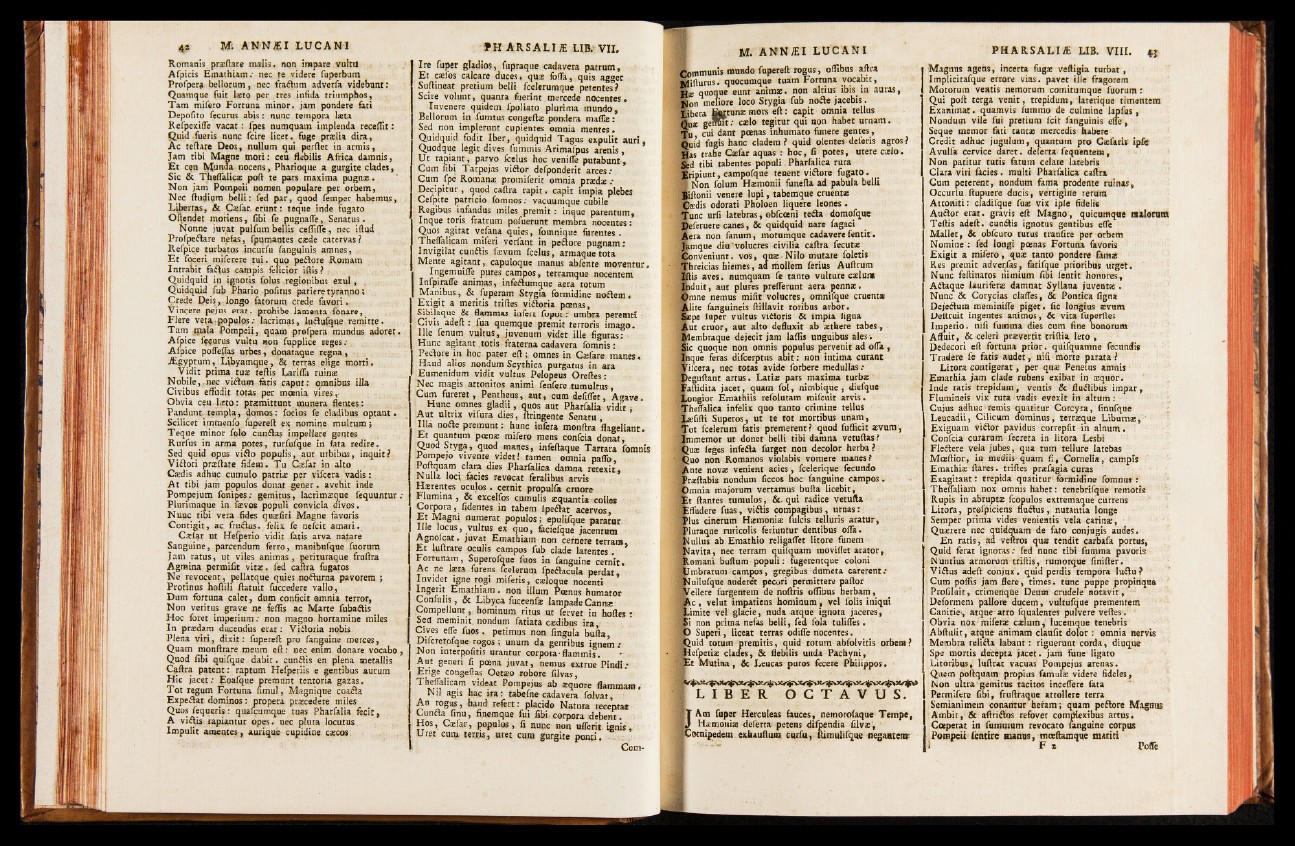 42 M. ANNÆI LUCANI
Romanis præstare malis. non impare vultu
Aspicis Emathiam: nec te videre superbum
Prospera bellorum, nec fractum adversa videbunt:
Quamque fuit læto per tres infida triumphos,
Tam misero Fortuna minor. jam pondere fati
Deposito securus abis: nunc tempora læta
Respexisse vacat: spes numquam implenda recessit:
Quid fueris nunc scire licet. fuge prælia dira,
Ac testare Deos, nullum qui perstet in armis,
Jam tibi Magne mori: ceu flebilis Africa damnis,
Et ceu Munda nocens, Pharioque a gurgite clades,
Sic & Thessalicæ post te pars maxima pugnæ.
Non jam Pompeii nomen populare per orbem,
Nec studium belli: sed par, quod semper habemus,
Libertas, & Cæsar erunt: teque inde fugato
Ostendet moriens, sibi se pugnasse, Senatus.
Nonne juvat pulsum bellis cessisse, nec istud
Prospectare nefas, spumantes cæde catervas?
Respice turbatos incursu sanguinis amnes,
Et soceri miserere tui. quo pectore Romam
Intrabit factus campis felicior istis?
Quidquid in ignotis solus regionibus exul,
Quidquid sub Phario positus patiere tyranno;
Crede Deis, longo fatorum crede favori.
Vincere pejus erat. prohibe lamenta sonare,
Flere veta populos: lacrimas, luctusque remitte.
Tam mala Pompeii, quam prospera mundus adoret.
Aspice securus vultu non supplice reges:
Aspice possessas urbes, donataque regna,
Ægyptum, Libyamque, & terras elige morti.
Vidit prima tuæ testis Larissa ruinæ
Nobile, nec victum fatis caput: omnibus illa
Civibus effudit totas per mœnia vires.
Obvia ceu læto: præmittunt munera flentes:
Pandunt templa, domos: socios se cladibus optant.
Scilicet immenso superest ex nomine multum;
Teque minor solo cunctas impellere gentes
Rursus in arma potes, rursusque in fata redire.
Sed quid opus victo populis, aut urbibus, inquit?
Victori præstate fidem. Tu Cæsar in alto
Cædis adhuc cumulo patriæ per viscera vadis:
At tibi jam populos donat gener. avehit inde
Pompejum sonipes: gemitus, lacrimæque sequuntur:
Plurimaque in sævos populi convicia divos.
Nunc tibi vera fides quæsiti Magne favoris
Contigit, ac fructus. felix se nescit amari.
Cæsar ut Hesperio vidit satis arva natare
Sanguine, parcendum ferro, manibusque suorum
Jam ratus, ut viles animas, perituraque frustra
Agmina permisit vitæ. sed castra fugatos
Ne revocent, pellatque quies nocturna pavorem;
Protinus hostili statuit succedere vallo,
Dum fortuna calet, dum conficit omnia terror,
Non veritus grave ne fessis ac Marte subactis
Hoc foret imperium: non magno hortamine miles
In prædam ducendus erat: Victoria nobis
Plena viri, dixit: superest pro sanguine merces,
Quam monstrare meum est: nec enim donare vocabo,
Quod sibi quisque dabit. cunctis en plena metallis
Castra patent: raptum Hesperiis e gentibus aurum
Hic jacet: Eoasque premunt tentoria gazas.
Tot regum Fortuna simul, Magnique coacta
Expectat dominos: propera præcedere miles
Quos sequeris: quascumque tuas Pharsalia fecit,
A victis rapiantur opes. nec plura locutus
Impulit amentes, aurique cupidine cæcos
PHARSALIÆ LIB. VII.
Ire super gladios, supraque cadavera patrum,
Et cæsos calcare duces. quæ fossa, quis agger
Sustineat pretium belli scelerumque petentes?
Scire volunt, quanta fuerint mercede nocentes.
Invenere quidem spoliato plurima mundo,
Bellorum in sumtus congestæ pondera massæ:
Sed non implerunt cupientes omnia mentes.
Quidquid fodit Iber, quidquid Tagus expulit auri,
Quodque legit dives summis Arimaspus arenis,
Ut rapiant, parvo scelus hoc venisse putabunt,
Cum sibi Tarpejas victor desponderit arces:
Cum spe Romanæ promiserit omnia prædæ:
Decipitur, quod castra rapit. capit impia plebes
Cespite patricio somnos: vacuumque cubile
Regibus infandus miles premit: inque parentum,
Inque toris fratrum posuerunt membra nocentes:
Quos agitat vesana quies, somnique furentes.
Thessalicam miseri versant in pectore pugnam:
Invigilat cunctis sævum scelus, armaque tota
Mente agitant, capuloque manus absente moventur.
Ingemuisse putes campos, terramque nocentem
Inspirasse animas, infectumque aera totum
Manibus, & superam Stygia formidine noctem.
Exigit a meritis tristes victoria pœnas,
Sibilaque & flammas infert sopor: umbra peremti
Civis adest: sua quemque premit terroris imago.
Ille senum vultus, juvenum videt ille figuras:
Hunc agitant totis fraterna cadavera somnis:
Pectore in hoc pater est; omnes in Cæsare manes.
Haud alios nondum Scythica purgatus in ara
Eumenidum vidit vultus Pelopeus Orestes:
Nec magis attonitos animi sensere tumultus,
Cum fureret, Pentheus, aut, cum desisset, Agave.
Hunc omnes gladii, quos aut Pharsalia vidit;
Aut ultrix visura dies, stringente Senatu,
Illa nocte premunt: hunc infera monstra flagellant.
Et quantum pœnæ misero mens conscia donat,
Quod Styga, quod manes, infestaque Tartara somnis
Pompejo vivente videt! tamen omnia passo,
Postquam clara dies Pharsalica damna retexit,
Nulla loci facies revocat feralibus arvis
Hærentes oculos. cernit propulsa cruore
Flumina, & excelsos cumulis æquantia colles
Corpora, sidentes in tabem spectat acervos,
Et Magni numerat populos; epulisque paratur
Ille locus, vultus ex quo, faciesque jacentum
Agnoscat. juvat Emathiam non cernere terram,
Et lustrare oculis campos sub clade latentes.
Fortunam, Superosque suos in sanguine cernit.
Ac ne læta furens scelerum spectacula perdat,
Invidet igne rogi miseris, cæloque nocenti
Ingerit Emathiam. non illum Pœnus humator
Consulis, & Libyca succensæ lampade Cannæ
Compellunt, hominum ritus ut servet in hostes:
Sed meminit nondum satiata cædibus ira,
Cives esse suos. petimus non singula busta,
Discretosque rogos; unum da gentibus ignem:
Non interpositis urantur corpora flammis.
Aut generi si pœna juvat, nemus extrue Pindi:
Erige congestas Oetæo robore silvas,
Thessalicam videat Pompejus ab æquore flammam.
Nil agis hac ira: tabesne cadavera solvat,
An rogus, haud refert: placido Natura receptat
Cuncta sinu, finemque sui sibi corpora debent.
Hos, Cæsar, populos, si nunc non usserit ignis,
Uret cum terris, uret cum gurgite ponti.
Com-
M. ANNÆI LUCANI
Communis mundo superest rogus, ossibus astra
Misturus. quocumque tuam Fortuna vocabit,
Hæ quoque eunt animæ. non altius ibis in auras,
Non meliore loco Stygia sub nocte jacebis.
Libera Fortunæ mors est: capit omnia tellus
Quæ genuit: cælo tegitur qui non habet urnam.
Tu, cui dant pœnas inhumato funere gentes,
Quid fugis hanc cladem? quid olentes deseris agros?
Has trahe Cæsar aquas: hoc, si potes, utere cælo.
Sed tibi tabentes populi Pharsalica rura
Eripiunt, camposque tenent victore fugato.
Non solum Hæmonii funesta ad pabula belli
Bistonii venere lupi, tabemque cruentæ
Cædis odorati Pholoen liquere leones.
Tunc ursi latebras, obscœni tecta domosque
Deseruere canes, & quidquid nare sagaci
Aera non sanum, motumque cadavere sentit.
Jamque diu volucres civilia castra secutæ
Conveniunt. vos, quæ Nilo mutare soletis
Threicias hiemes, ad mollem serius Austrum
Istis aves. numquam se tanto vulture cælum
Induit, aut plures presserunt aera pennæ.
Omne nemus misit volucres, omnisque cruenta
Alite sanguineis stillavit roribus arbor.
Sæpe super vultus victoris & impia signa
Aut cruor, aut alto defluxit ab æthere tabes,
Membraque dejecit jam lassis unguibus ales.
Sic quoque non omnis populus pervenit ad ossa,
Inque feras discerptus abit: non intima curant
Viscera, nec totas avide sorbere medullas:
Degustant artus. Latiæ pars maxima turbæ
Fastidita jacet, quam sol, nimbique, diesque
Longior Emathiis resolutam miscuit arvis.
Thessalica infelix quo tanto crimine tellus
Læsisti Superos, ut te tot mortibus unam,
Tot scelerum fatis premerent? quod sufficit ævum,
Immemor ut donet belli tibi damna vetustas?
Quæ seges infecta surget non decolor herba?
Quo non Romanos violabis vomere manes?
Ante novæ venient acies, scelerique secundo
Præstabis nondum siccos hac sanguine campos.
Omnia majorum vertamus busta licebit,
Et stantes tumulos, &. qui radice vetusta
Effudere suas, victis compagibus, urnas:
Plus cinerum Hæmoniæ sulcis telluris aratur,
Pluraque ruricolis feriuntur dentibus ossa.
Nullus ab Emathio religasset litore funem
Navita, nec terram quisquam movisset arator,
Romani bustum populi: fugerentque coloni
Umbrarum campos, gregibus dumeta carerent:
Nullusque auderet pecori permittere pastor
Vellere surgentem de nostris ossibus herbam,
Ac, velut impatiens hominum, vel solis iniqui
Limite vel glacie, nuda atque ignota jaceres,
Si non prima nefas belli, sed sola tulisses.
O Superi, liceat terras odisse nocentes.
Quid totum premitis, quid totum absolvitis orbem?
Hesperiæ clades, & flebilis unda Pachyni,
Et Mutina, & Leucas puros fecere Philippos.
LIBER OCTAVUS.
JAm super Herculeas fauces, nemorosaque Tempe,
Hæmoniæ deserta petens dispendia silvæ,
Cornipedem exhaustum cursu, stimulisque negantem
PHARSALIÆ LIB. VIII. 43
Magnus agens, incerta fugæ vestigia turbat,
Implicitasque errore vias. pavet ille fragorem
Motorum ventis nemorum comitumque suorum:
Qui post terga venit, trepidum, laterique timentem
Exanimat. quamvis summo de culmine lapsus,
Nondum vile sui pretium scit sanguinis esse,
Seque memor fati tantæ mercedis habere
Credit adhuc jugulum, quantum pro Cæsaris ipse
Avulsa cervice daret. deserta sequentem,
Non patitur tutis fatum celare latebris
Clara viri facies. multi Pharsalica castra
Cum peterent, nondum fama prodente ruinas,
Occursu stupuere ducis, vertigine rerum
Attoniti: cladisque suæ vix ipse fidelis
Auctor erat. gravis est Magno, quicumque malorum
Testis adest. cunctis ignotus gentibus esse
Mallet, & obscuro tutus transire per orbem
Nomine: sed longi pœnas Fortuna favoris
Exigit a misero, quæ tanto pondere famæ
Res premit adversas, fatisque prioribus urget.
Nunc festinatos nimium sibi sentit honores,
Actaque lauriferæ damnat Syllana juventæ.
Nunc & Corycias classes, & Pontica signa
Dejectum meminisse piget. sic longius ævum
Destruit ingentes animos, & vita superstes
Imperio. nisi summa dies cum fine bonorum
Affuit, & celeri prævertit tristia leto,
Dedecori est fortuna prior. quisquamne secundis
Tradere se fatis audet, nisi morte parata?
Litora contigerat, per quæ Peneius amnis
Emathia jam clade rubens exibat in æquor.
Inde ratis trepidum, ventis & fluctibus impar,
Flumineis vix tuta vadis evexit in altum:
Cujus adhuc remis quatitur Corcyra, sinusque
Leucadii, Cilicum dominus, terræque Liburnæ,
Exiguam vector pavidus correpsit in alnum.
Conscia curarum secreta in litora Lesbi
Flectere vela jubes, qua tum tellure latebas
Mœstior, in mediis quam si, Cornelia, campis
Emathiæ stares. tristes præsagia curas
Exagitant: trepida quatitur formidine somnus:
Thessaliam nox omnis habet: tenebrisque remotis
Rupis in abruptæ scopulos extremaque currens
Litora, prospiciens fluctus, nutantia longe
Semper prima vides venientis vela carinæ,
Quærere nec quidquam de fato conjugis audes.
En ratis, ad vestros quæ tendit carbasa portus,
Quid ferat ignoras: sed nunc tibi summa pavoris
Nuntius armorum tristis, rumorque sinister.
Victus adest conjux. quid perdis tempora luctu?
Cum possis jam flere, times. tunc puppe propinqua
Prosilait, crimenque Deum crudele notavit,
Deformem pallore ducem, vultusque prementem
Canitie, atque atro squalentes pulvere vestes.
Obvia nox miseræ cælum, lucemque tenebris
Abstulit, atque animam clausit dolor: omnia nervis
Membra relicta labant: riguerunt corda, diuque
Spe mortis decepta jacet. jam fune ligato
Litoribus, lustrat vacuas Pompejus arenas.
Quem postquam propius famulæ videre fideles,
Non ultra gemitus tacitos incessere fata
Permisere sibi, frustraque attollere terra
Semianimem conantur heram; quam pectore Magnus
Ambit, & astrictos refovet complexibus artus.
Cœperat in summum revocato sanguine corpus
Pompeii sentire manus, mœstamque mariti
F 2 Posse